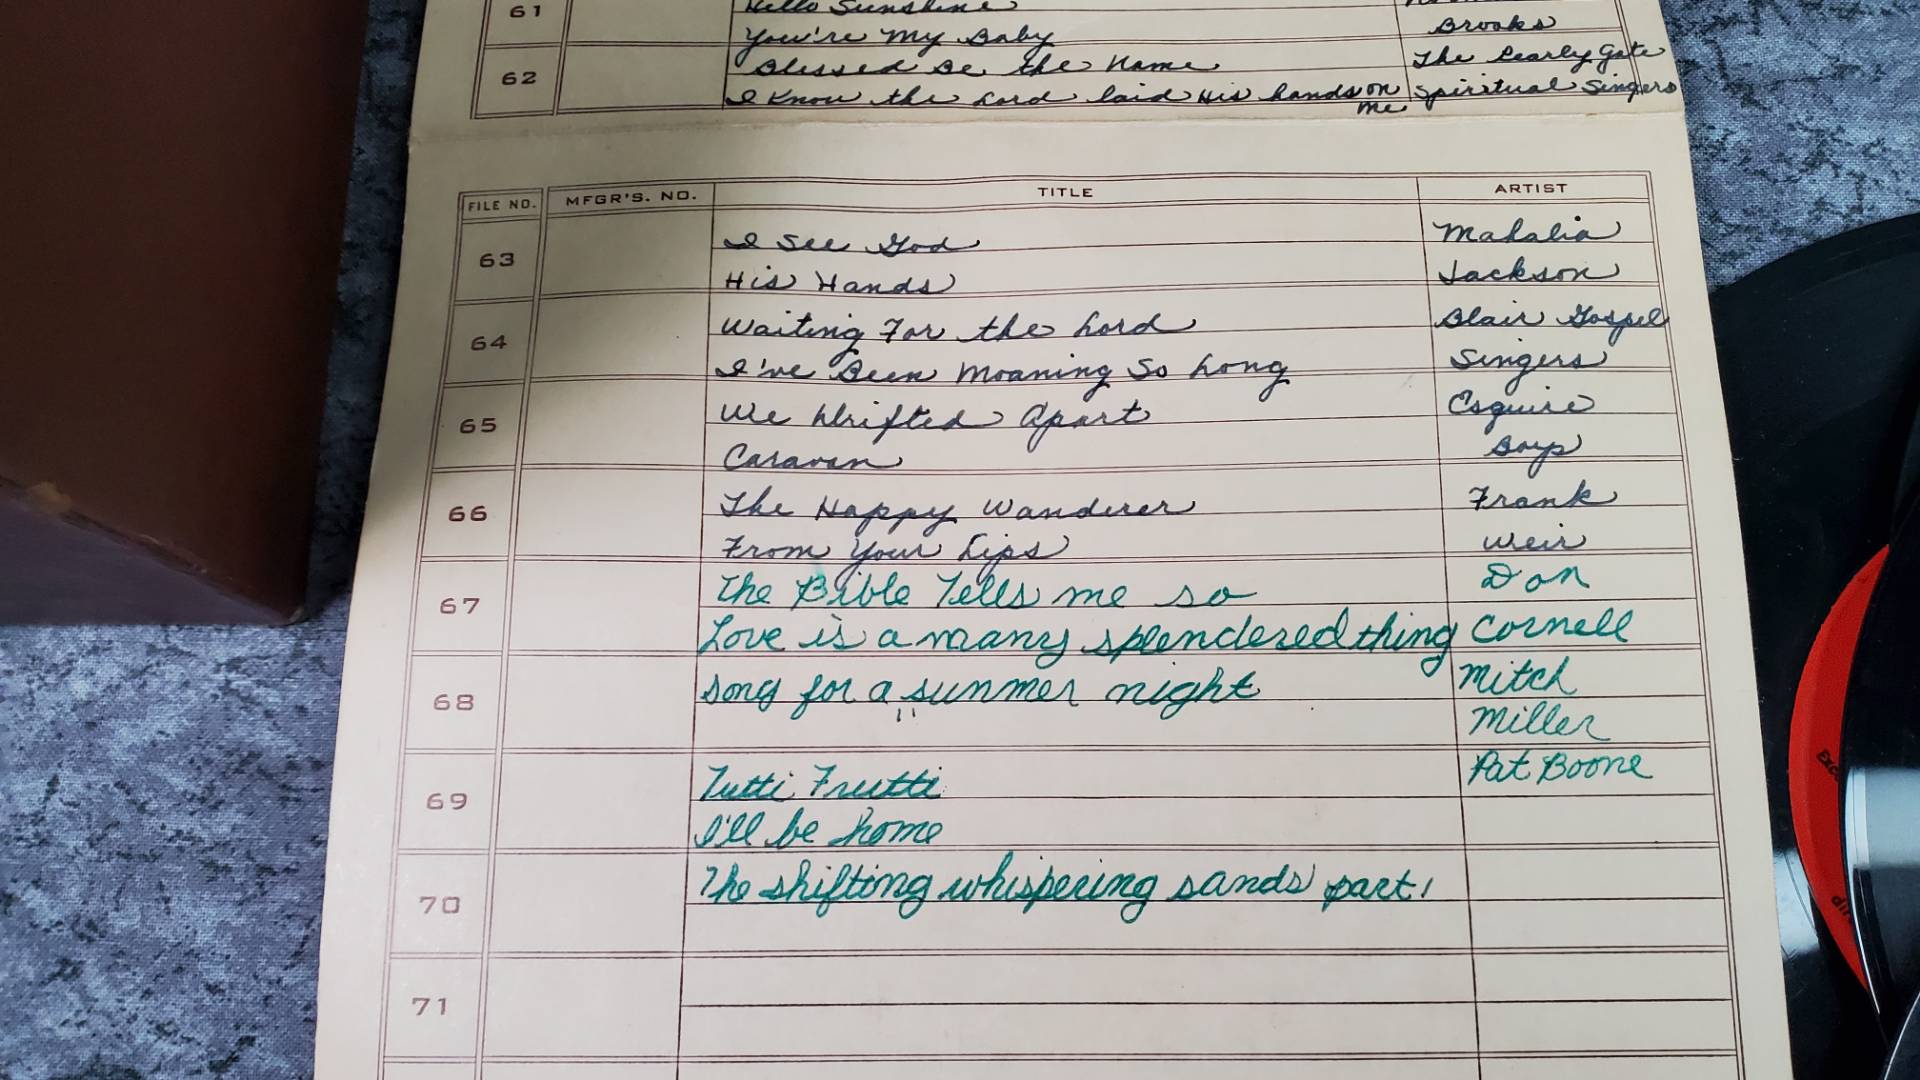 61 Hello Sunshine
You're My Baby Brooks
62 Blessed Be the Name The Pearly Gate
I Know the Lord laid His hands on me Spiritual Singers
FILE NO. MFGR'S. NO. TITLE ARTIST
63 I See God Mahalia
His Hands Jackson
64 Waiting For the Lord Blair Gospel
I've Been Moaning So Long Singers
65 We Drifted Apart Esquire
Caravan Boys
66 The Happy Wanderer Frank
From Your Lips Weir
67 The Bible Tells me so Don
Love is a many splendered thing Cornell
68 song for a summer night Mitch
" Miller
69 Tutti Frutti Pat Boone
I'll be home
70 The shifting whispering sands part 1
71